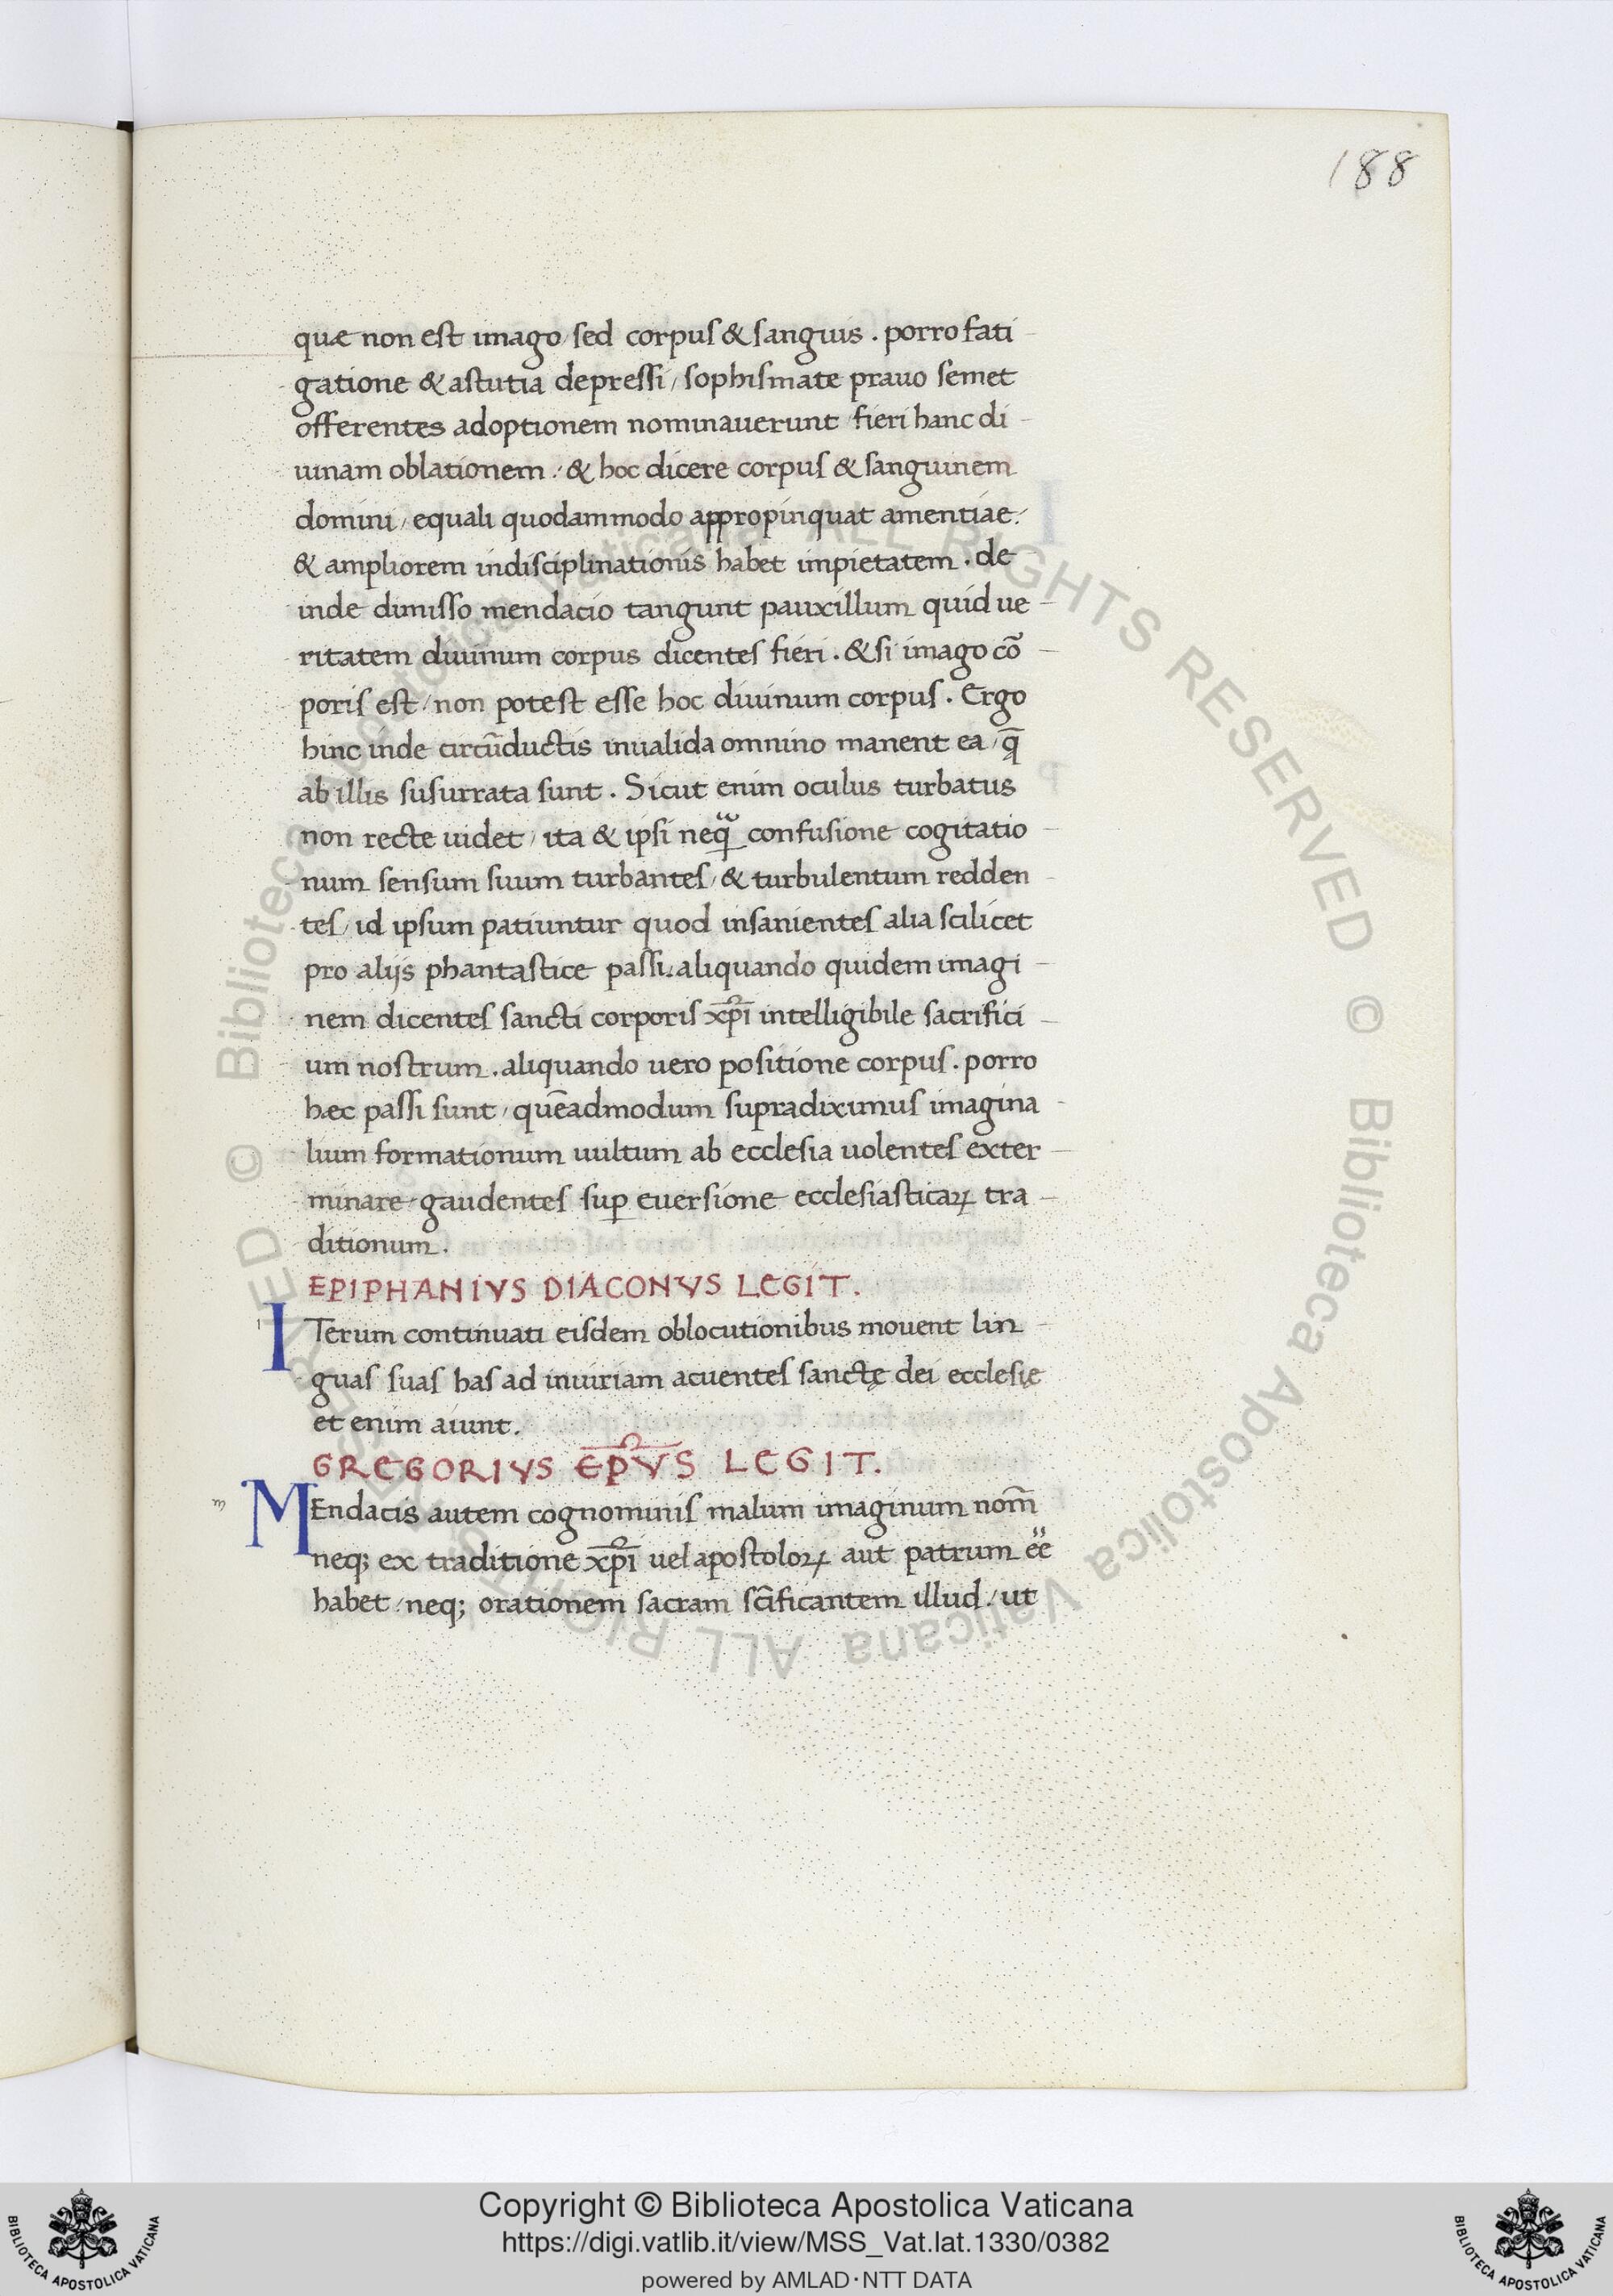 188
quæ non est imago / sed corpus & sanguis . porro fati
gatione & astutia depressi / sophismate prauo semet
offerentes adoptionem nominauerunt fieri hanc di
uinam oblationem ./ & hoc dicere corpus & sanguinem
domini / equali quodammodo appropinquat amentiae ./
& ampliorem indisciplinationis habet impietatem . de
inde dimisso mendacio tangunt pauxillum quid ue
ritatem diuinum corpus dicentes fieri . & si imago cō
poris est / non potest esse hoc diuinum corpus . Ergo
hinc inde circūductis inualida omnino manent ea / q̄
ab illis susurrata sunt . Sicut enim oculus turbatus
non recte uidet / ita & ipsi neq confusione cogitatio
num sensum suum turbantes / & turbulentum redden
tes / id ipsum patiuntur quod insanientes alia scilicet
pro alijs phantastice passi . aliquando quidem imagi
nem dicentes sancti corporis xp̄i intelligibile sacrifici
um nostrum . aliquando uero positione corpus . porro
hæc passi sunt / quēadmodum supradiximus imagina
lium formationum uultum ab ecclesia uolentes exter
minare gaudentes suꝑ euersione ecclesiasticaꝝ tra
ditionum .
EPIPHANIVS DIACONVS LEGIT .
ITerum continuati eisdem oblocutionibus mouent lin
guas suas has ad iniuriam acuentes sanctę dei ecclesię
et enim aiunt .
GREGORIVS EP̄VS LEGIT .
m
MEndacis autem cognominis malum imaginum nom̄
neq; ex traditione xp̄i uel apostoloꝝ aut patrum ēē
habet / neq; orationem sacram sc̄ificantem illud / ut
© Biblioteca Apostolica Vaticana ALL RIGHTS RESERVED © Biblioteca Apostolica Vaticana ALL RIGHTS RESERVED
Copyright © Biblioteca Apostolica Vaticana
https://digi.vatlib.it/view/MSS_Vat.lat.1330/0382
powered by AMLAD·NTT DATA
BIBLIOTECA APOSTOLICA VATICANA
BIBLIOTECA APOSTOLICA VATICANA